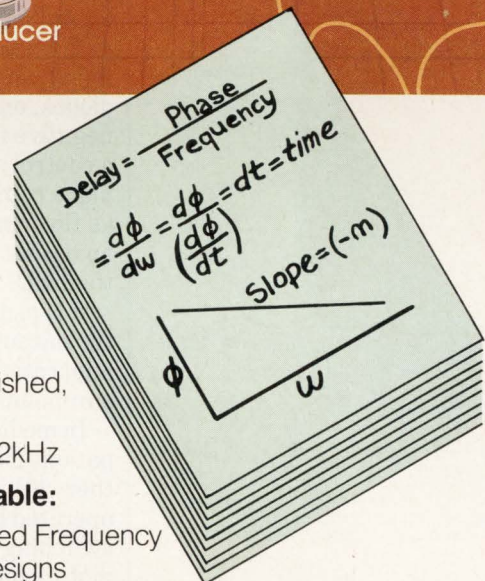 ducer
Delay = Phase / Frequency
= dϕ/dw = dϕ/(dϕ/dt) = dt = time
Slope = (-m)
ϕ
w
ished,
2kHz
able:
ed Frequency
esigns